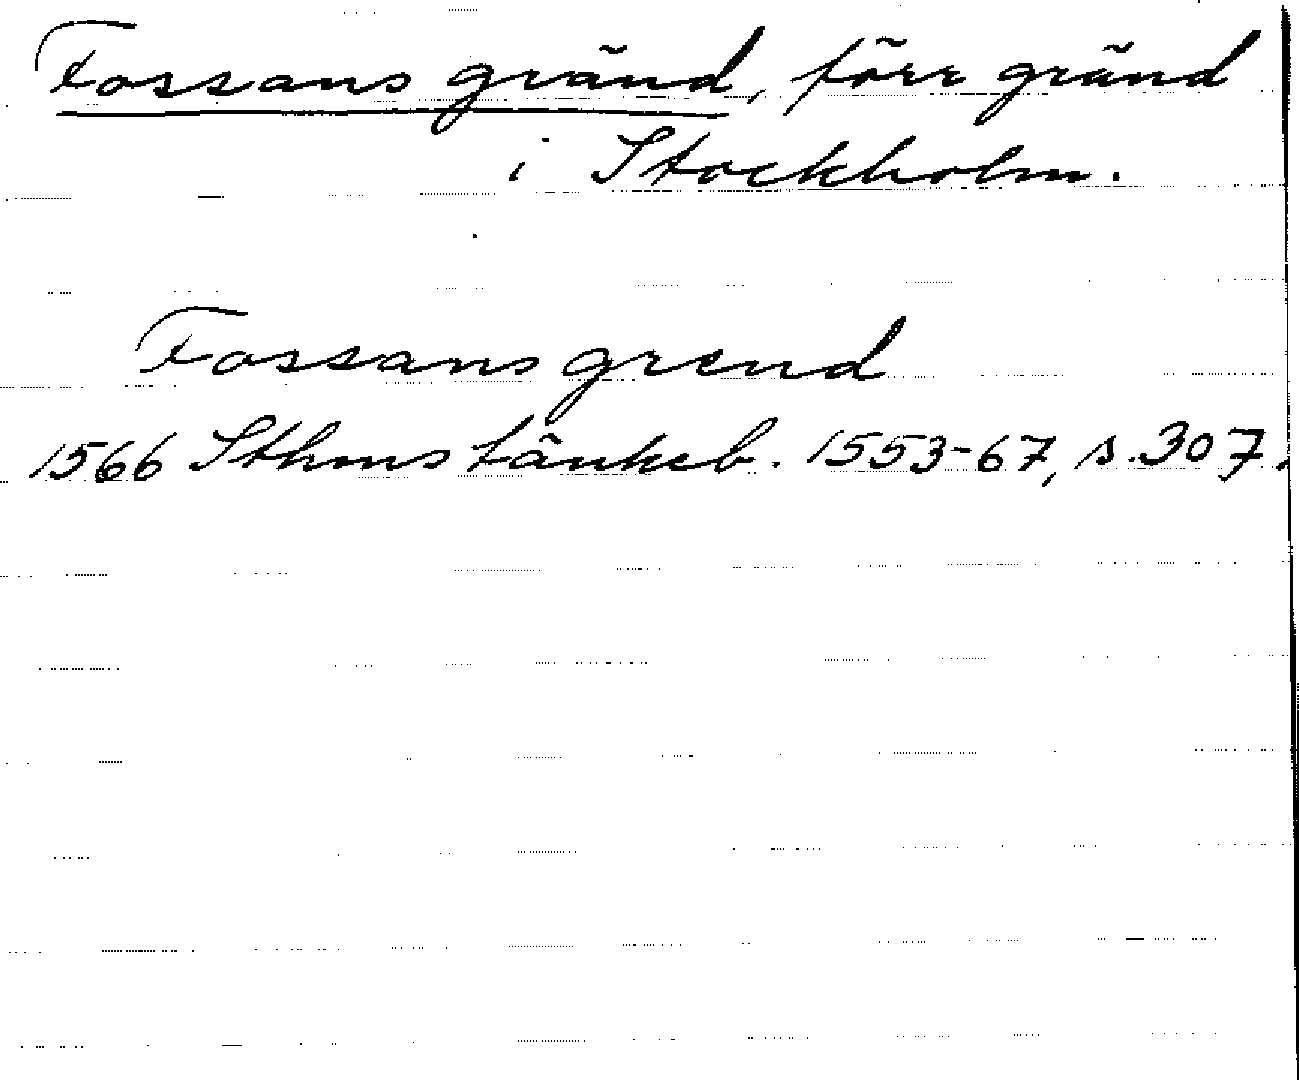 Fossans gränd, förr gränd
i Stockholm.
Fossans grend
1566 Sthms tänkeb. 1553-67, s. 307.